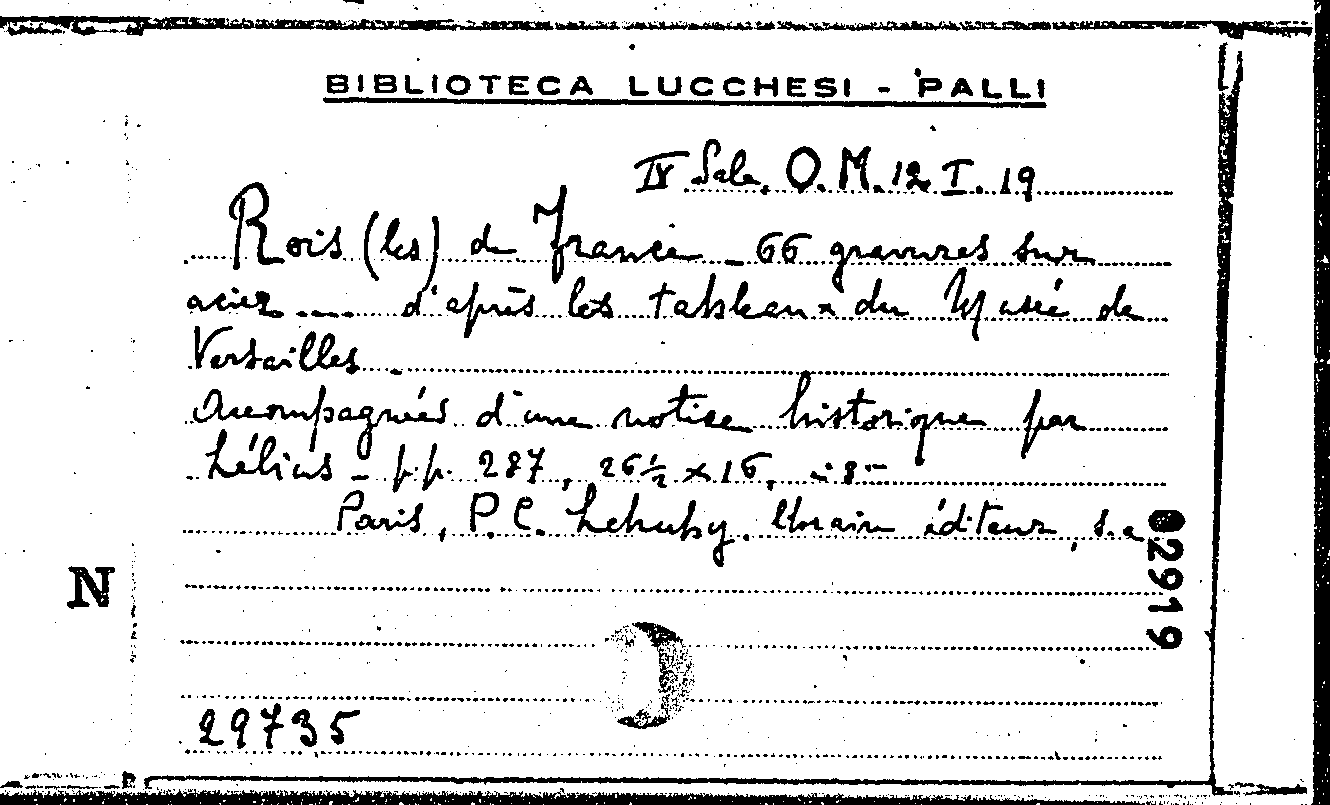 BIBLIOTECA LUCCHESI - PALLI
IV Sala. O. M. 12 I. 19
Rois (les) de France - 66 gravures sur
acier .... d'après les tableaux du Musée de
Versailles -
Accompagnées d'une notice historique par
Lélius - p.p. 287, 26½ x 16, in 8°
Paris, P. C. Lehuby. libraire éditeur, s.a
02919
N
29735